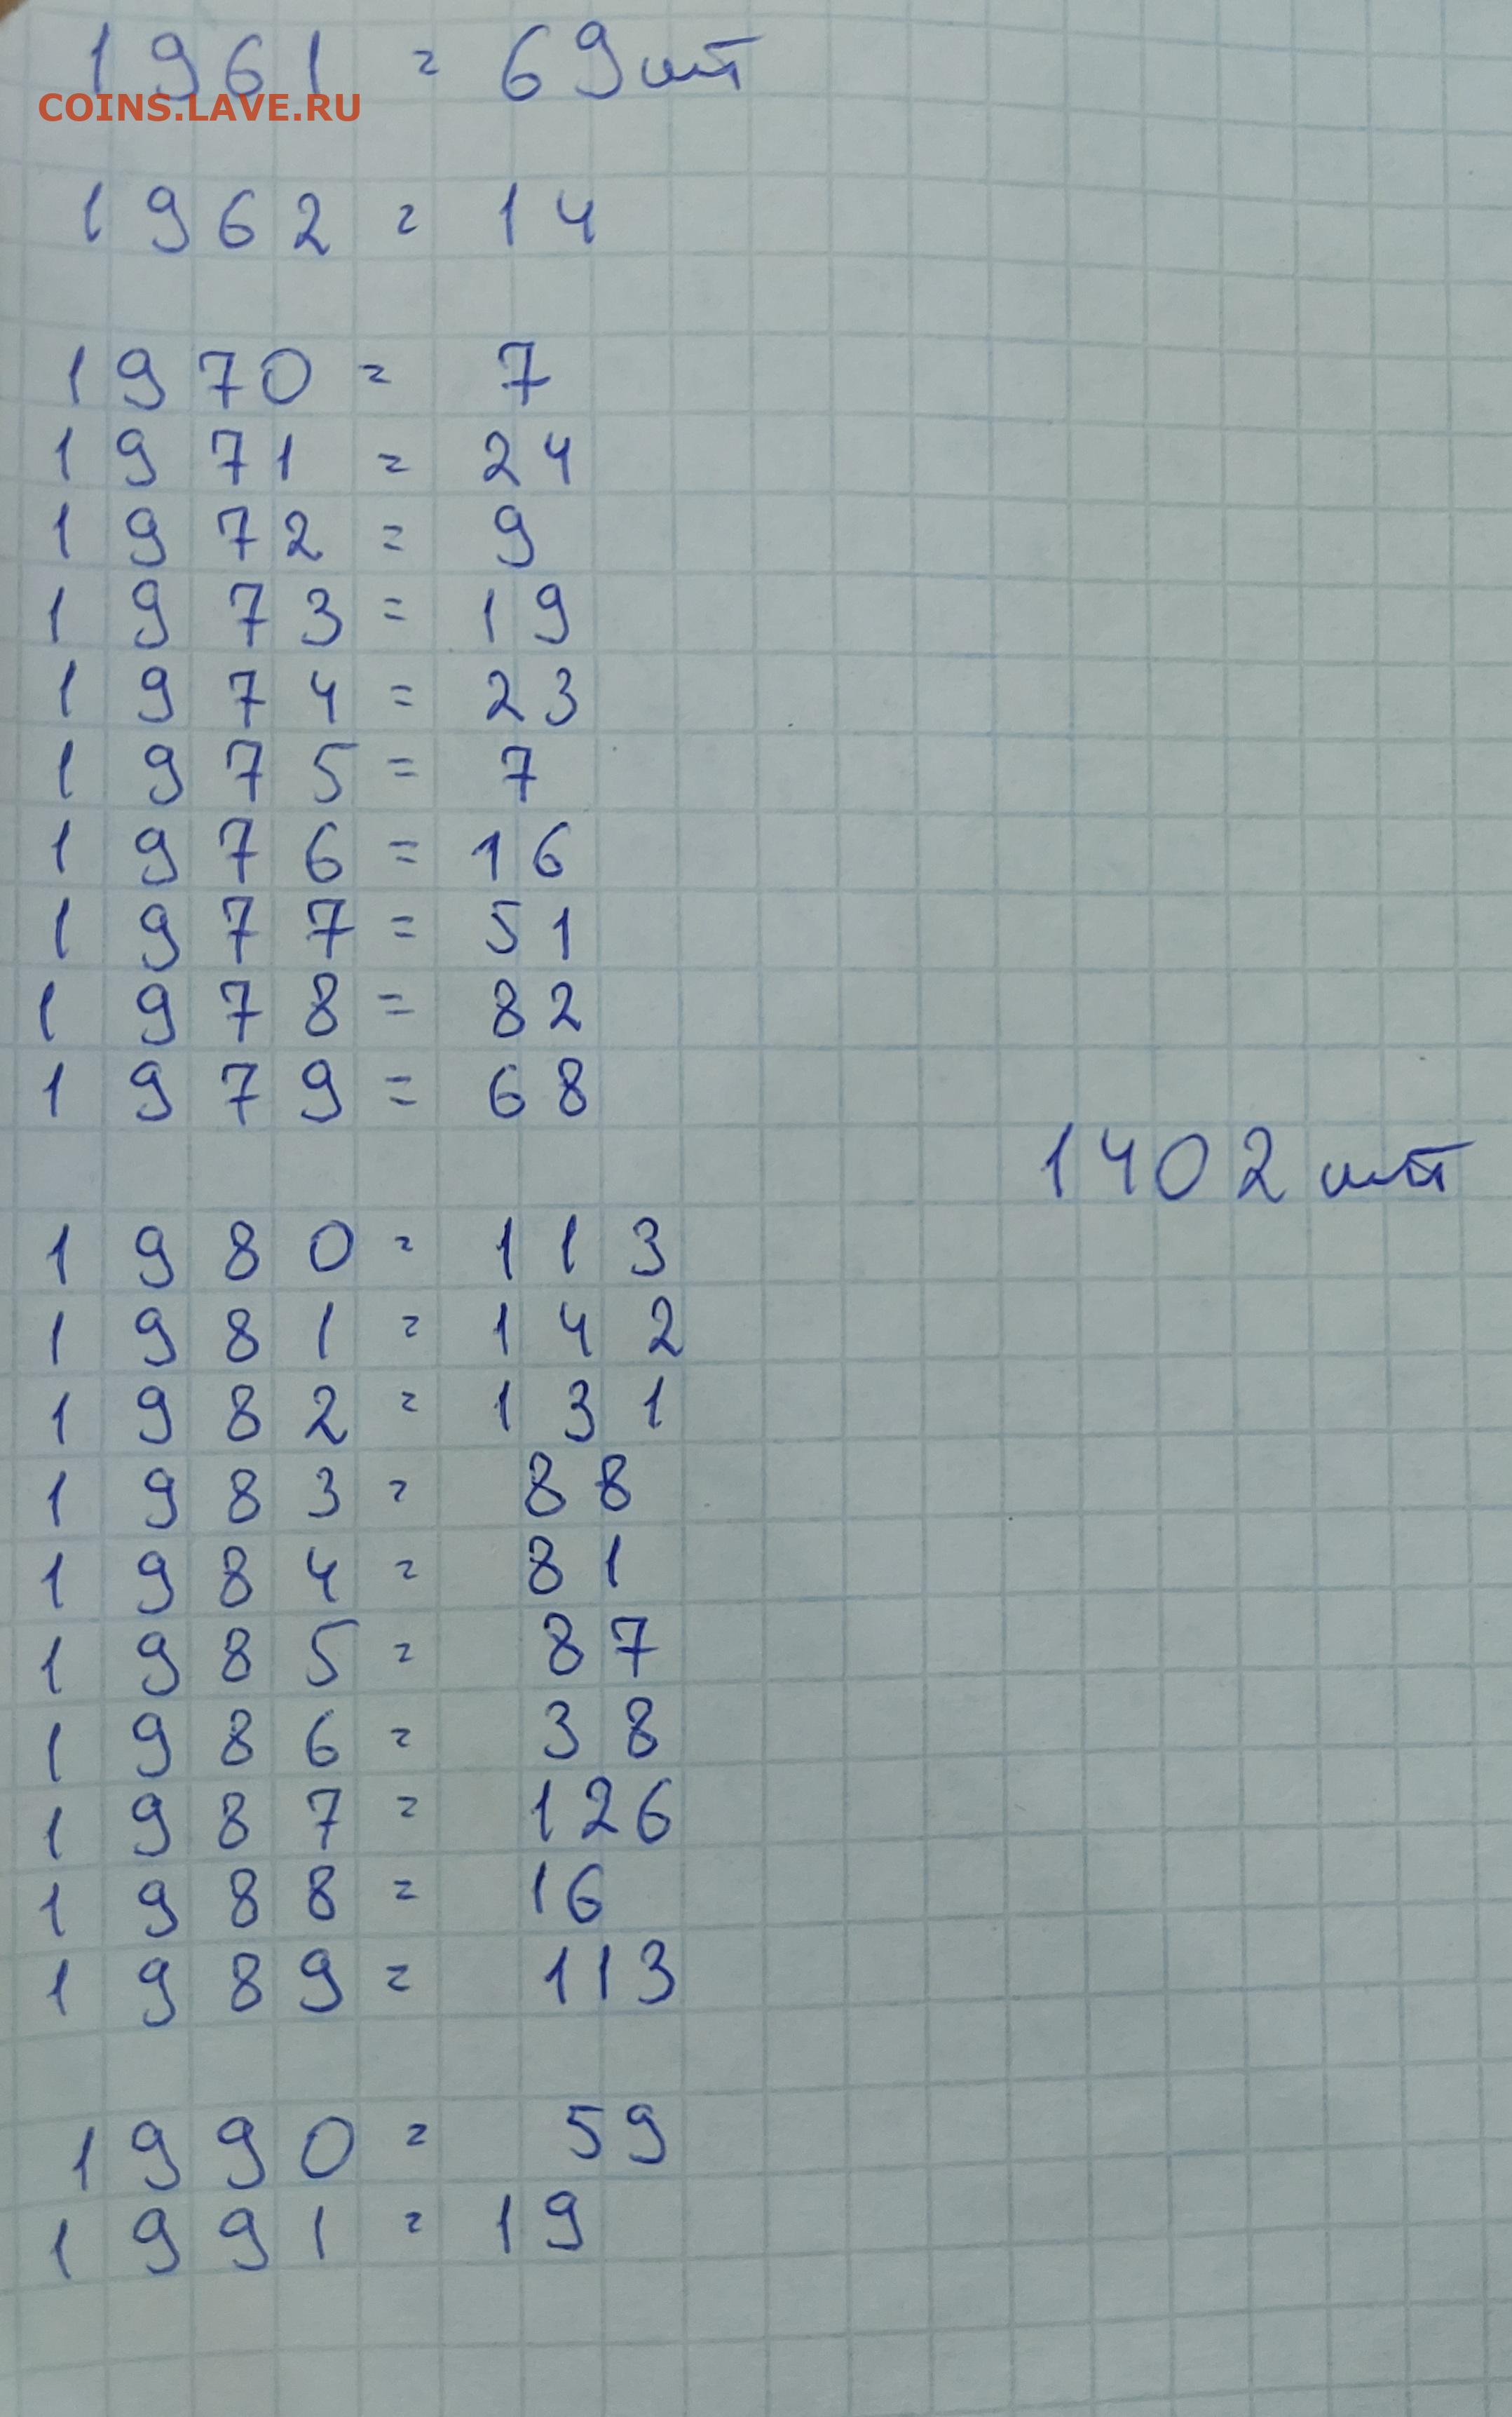 1961 = 69шт
COINS.LAVE.RU
1962 = 14
1970 = 7
1971 = 24
1972 = 9
1973 = 19
1974 = 23
1975 = 7
1976 = 16
1977 = 51
1978 = 82
1979 = 68
1402 шт
1980 = 113
1981 = 142
1982 = 131
1983 = 88
1984 = 81
1985 = 87
1986 = 38
1987 = 126
1988 = 16
1989 = 113
1990 = 59
1991 = 19